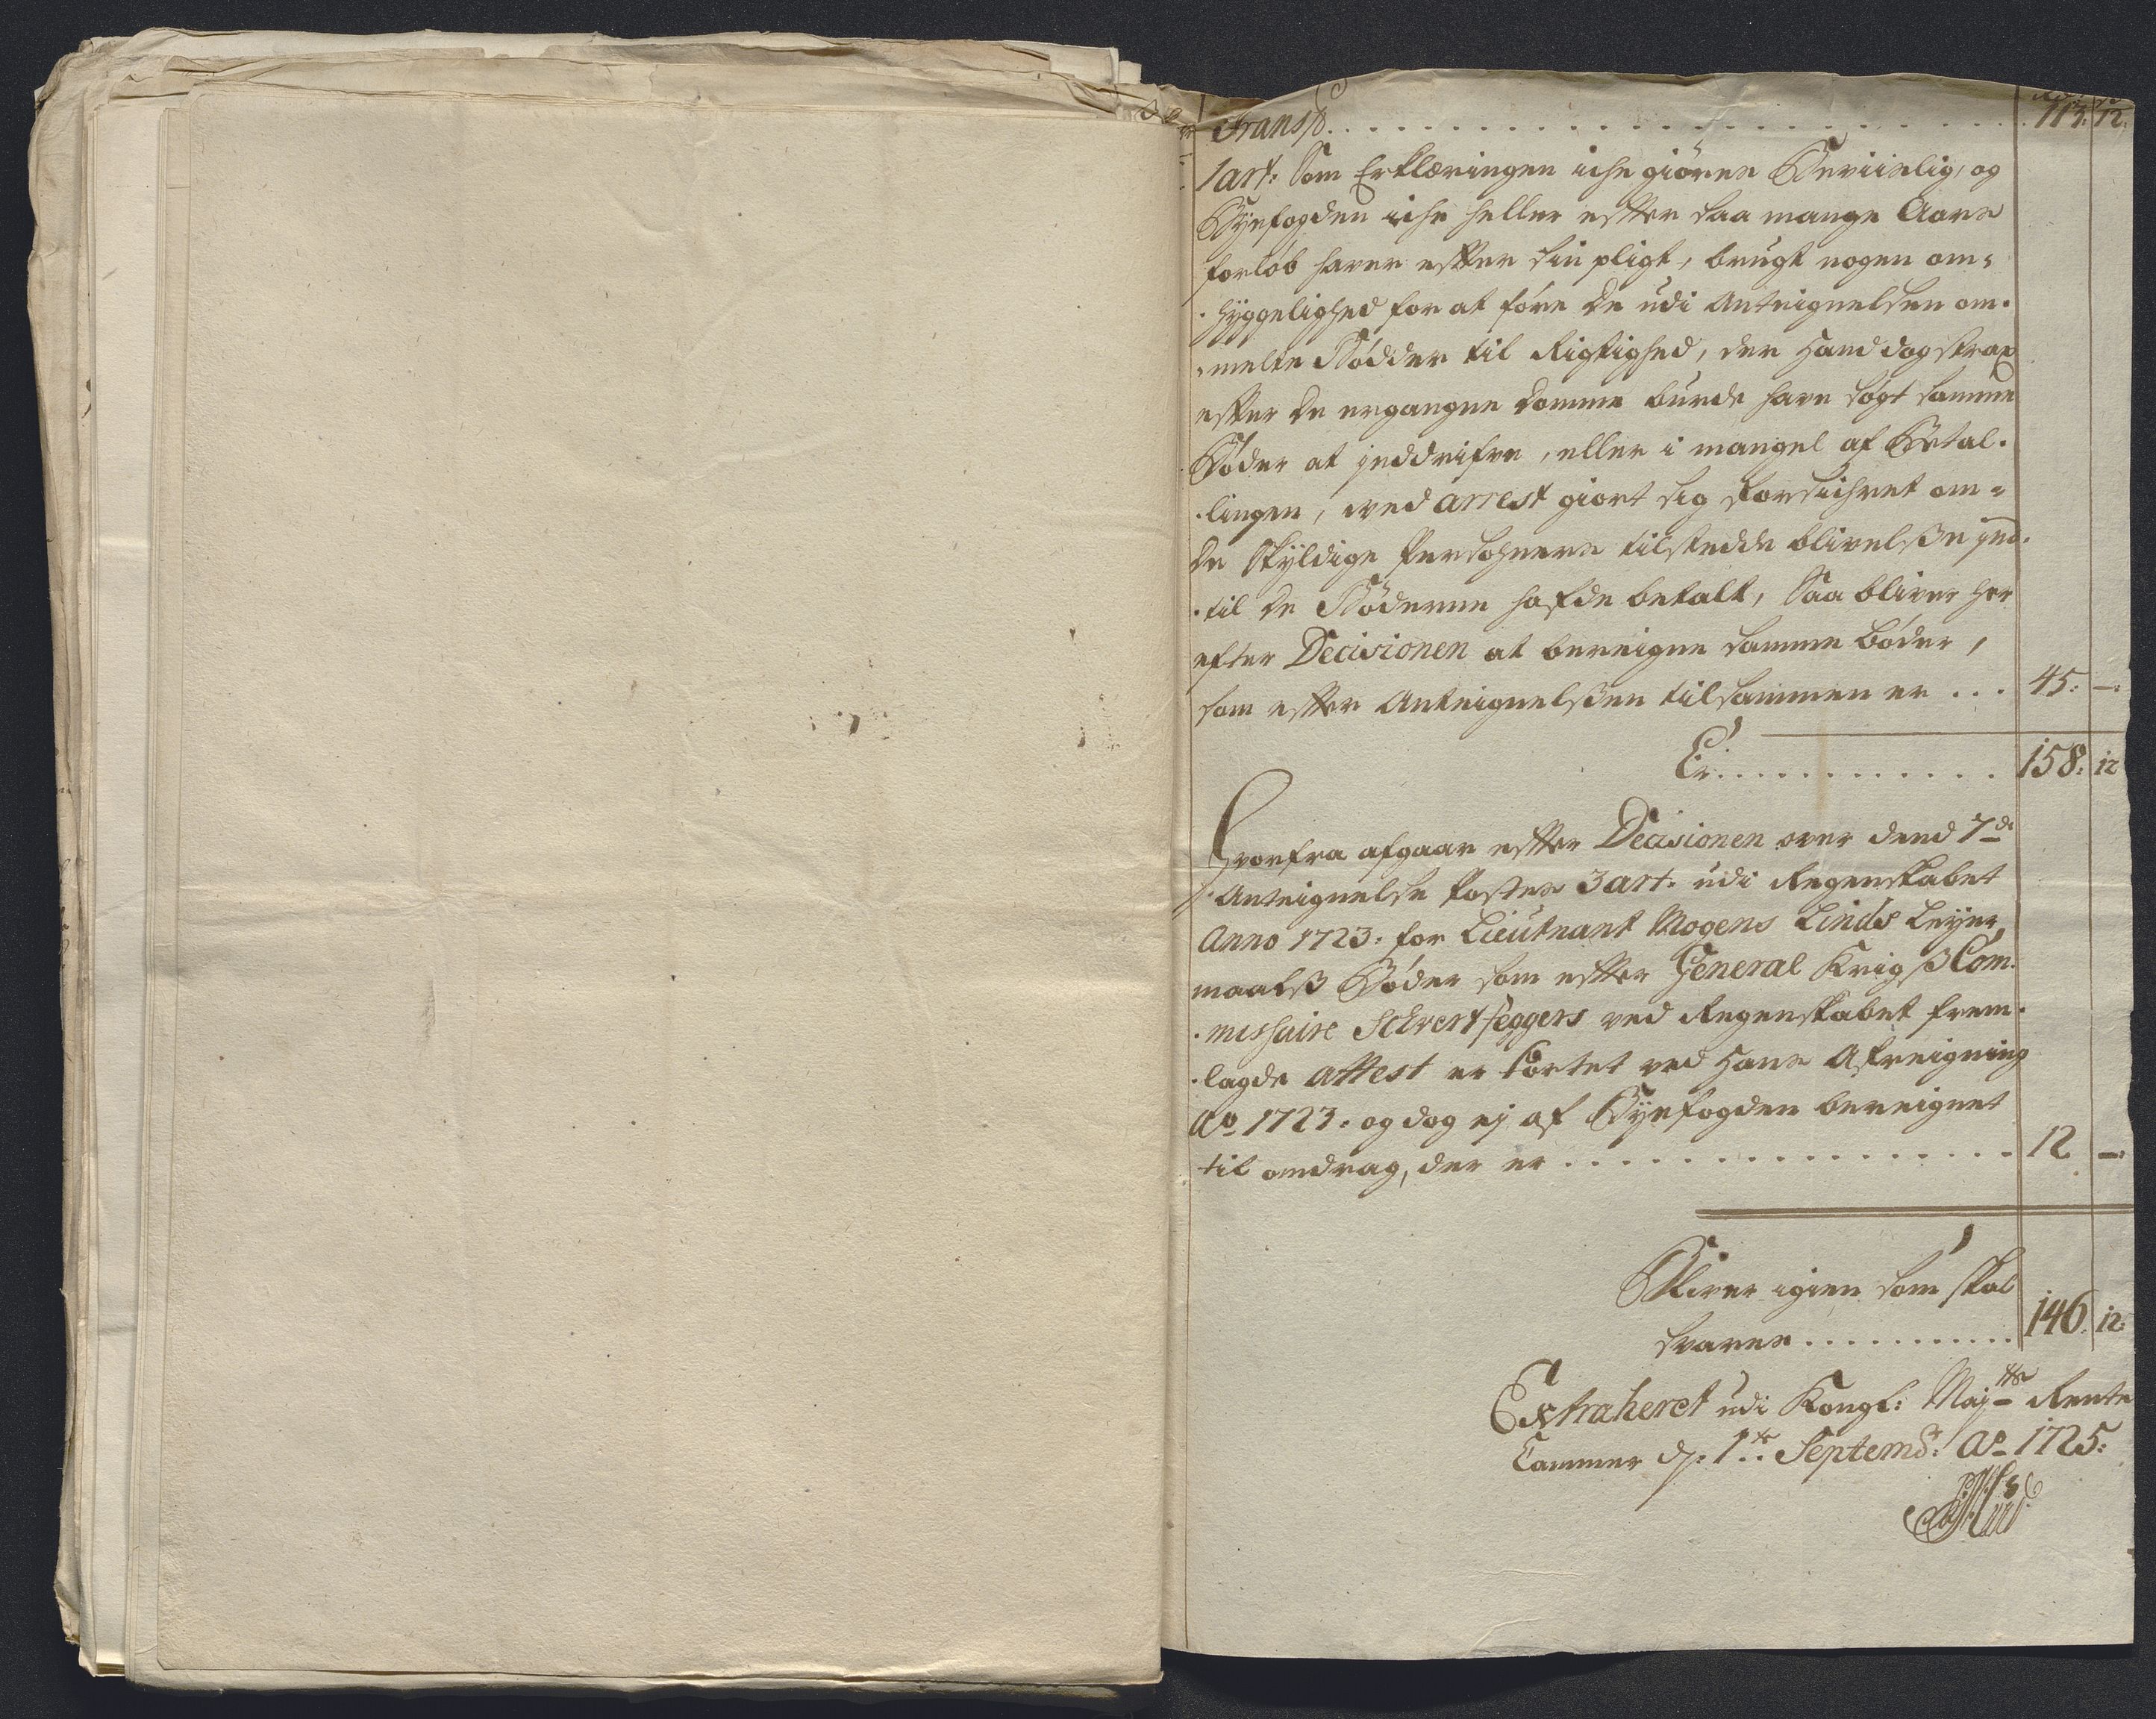 Rdr: ß
Transp. . . . . . . . . . . . . . . . . . . . . . . 113: 12:
1 art: Som Erklæringen iche giøres Beviislig, og
Byefogden iche heller effter saa mange Aars
forløb haver effter sin pligt, brugt nogen om-
hyggelighed for at føre de udi Anteignelsen om-
melte Bødder til Rigtighed, der hand dog strax
effter de ergangne domme burde have søgt samme
Bøder at inddrifve, eller i mangel af Betal-
lingen, ved arrest giort sig forsichret om
de Skyldige Persohners tilstedde blivelße ind-
til de Bøderne hafde betalt, Saa bliver her
efter Decisionen at bereigne samme bøder,
som effter Anteignelßen tilsammen er . . . 45: —:
Er . . . . . . . . . . . . 158: 12
Hvorfra afgaar effter Decisionen over dend 7de
Anteignelse Postes 3 art: udi Regenskabet
Anno 1723. for Lieutnant Mogens Linds Leyer
maalß Bøder som effter General Krigß Com-
missaire Schvertfeggers ved Regenskabet frem-
lagde attest er kortet ved hans Afreigning
Ao 1723. og dog ej af Byefogden bereignet
til andrag, der er . . . . . . . . . . . . . . . . 12 —:
Bliver igien som skal
svares . . . . . . . . . . . 146. 12:
Extraheret udi Kongl: Majts Rente
Cammer d: 1te Septembr: Ao 1725: